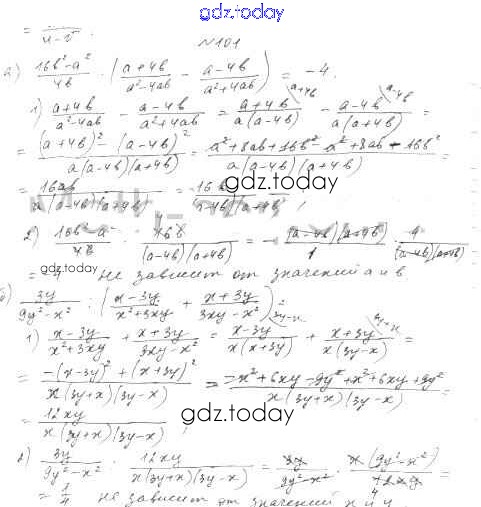 gdz.today
= 4-b
№101
а) (16b²-a²)/4b · ((a+4b)/(a²-4ab) - (a-4b)/(a²+4ab)) = -4.
1) (a+4b)/(a²-4ab) - (a-4b)/(a²+4ab) = (a+4b)/(a(a-4b)) - (a-4b)/(a(a+4b)) =
= ((a+4b)² - (a-4b)²)/(a(a-4b)(a+4b)) = (a²+8ab+16b²-a²+8ab-16b²)/(a(a-4b)(a+4b)) =
= 16ab/(a(a-4b)(a+4b)) = 16b/((a-4b)(a+4b));
gdz.today
2) (16b²-a²)/4b · 16b/((a-4b)(a+4b)) = -((a-4b)(a+4b))/1 · 4/((a-4b)(a+4b))
= -4 не зависит от значений a и b
gdz.today
б) 3y/(9y²-x²) : ((x-3y)/(x²+3xy) + (x+3y)/(3xy-x²)) =
1) (x-3y)/(x²+3xy) + (x+3y)/(3xy-x²) = (x-3y)/(x(x+3y)) + (x+3y)/(x(3y-x)) =
= (-(x-3y)² + (x+3y)²)/(x(3y+x)(3y-x)) = (-x²+6xy-9y²+x²+6xy+9y²)/(x(3y+x)(3y-x)) =
= 12xy/(x(3y+x)(3y-x));
gdz.today
2) 3y/(9y²-x²) : 12xy/(x(3y+x)(3y-x)) = 3y/(9y²-x²) · x(9y²-x²)/12xy =
= 1/4 не зависит от значений x и y